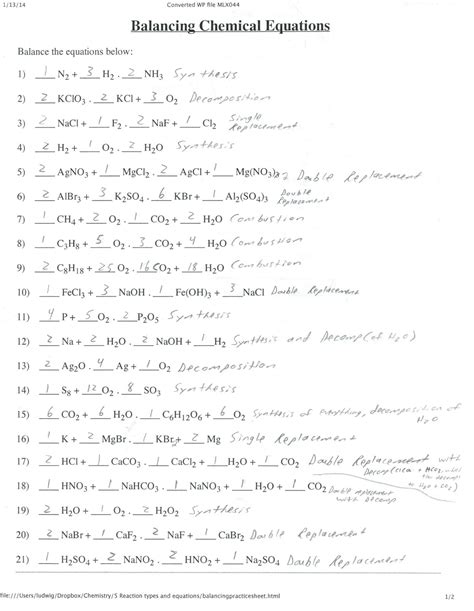 1/13/14 Converted WP file MLX044
Balancing Chemical Equations
Balance the equations below:
1) 1 N2 + 3 H2 . 2 NH3 Synthesis
2) 2 KClO3 . 2 KCl + 3 O2 Decomposition
3) 2 NaCl + 1 F2 . 2 NaF + 1 Cl2 Single Replacement
4) 2 H2 + 1 O2 . 2 H2O Synthesis
5) 2 AgNO3 + 1 MgCl2 . 2 AgCl + 1 Mg(NO3)2 Double Replacement
6) 2 AlBr3 + 3 K2SO4 . 6 KBr + 1 Al2(SO4)3 Double Replacement
7) 1 CH4 + 2 O2 . 1 CO2 + 2 H2O Combustion
8) 1 C3H8 + 5 O2 . 3 CO2 + 4 H2O Combustion
9) 2 C8H18 + 25 O2 . 16 CO2 + 18 H2O Combustion
10) 1 FeCl3 + 3 NaOH . 1 Fe(OH)3 + 3 NaCl Double Replacement
11) 4 P + 5 O2 . 2 P2O5 Synthesis
12) 2 Na + 2 H2O . 2 NaOH + 1 H2 Synthesis and Decomp (of H2O)
13) 2 Ag2O . 4 Ag + 1 O2 Decomposition
14) 1 S8 + 12 O2 . 8 SO3 Synthesis
15) 6 CO2 + 6 H2O . 1 C6H12O6 + 6 O2 Synthesis of everything, decomposition of H2O
16) 1 K + 2 MgBr . 1 KBr + 2 Mg Single Replacement
17) 2 HCl + 1 CaCO3 . 1 CaCl2 + 1 H2O + 1 CO2 Double Replacement with Decomp
18) 1 HNO3 + 1 NaHCO3 . 1 NaNO3 + 1 H2O + 1 CO2 Double replacement with decomp
19) 2 H2O . 2 H2 + 1 O2 Decomposition
20) 2 NaBr + 1 CaF2 . 2 NaF + 1 CaBr2 Double Replacement
21) 1 H2SO4 + 2 NaNO2 . 2 HNO2 + 1 Na2SO4 Double Replacement
file:///Users/ludwig/Dropbox/Chemistry/5 Reaction types and equations/balancingpracticesheet.html 1/2